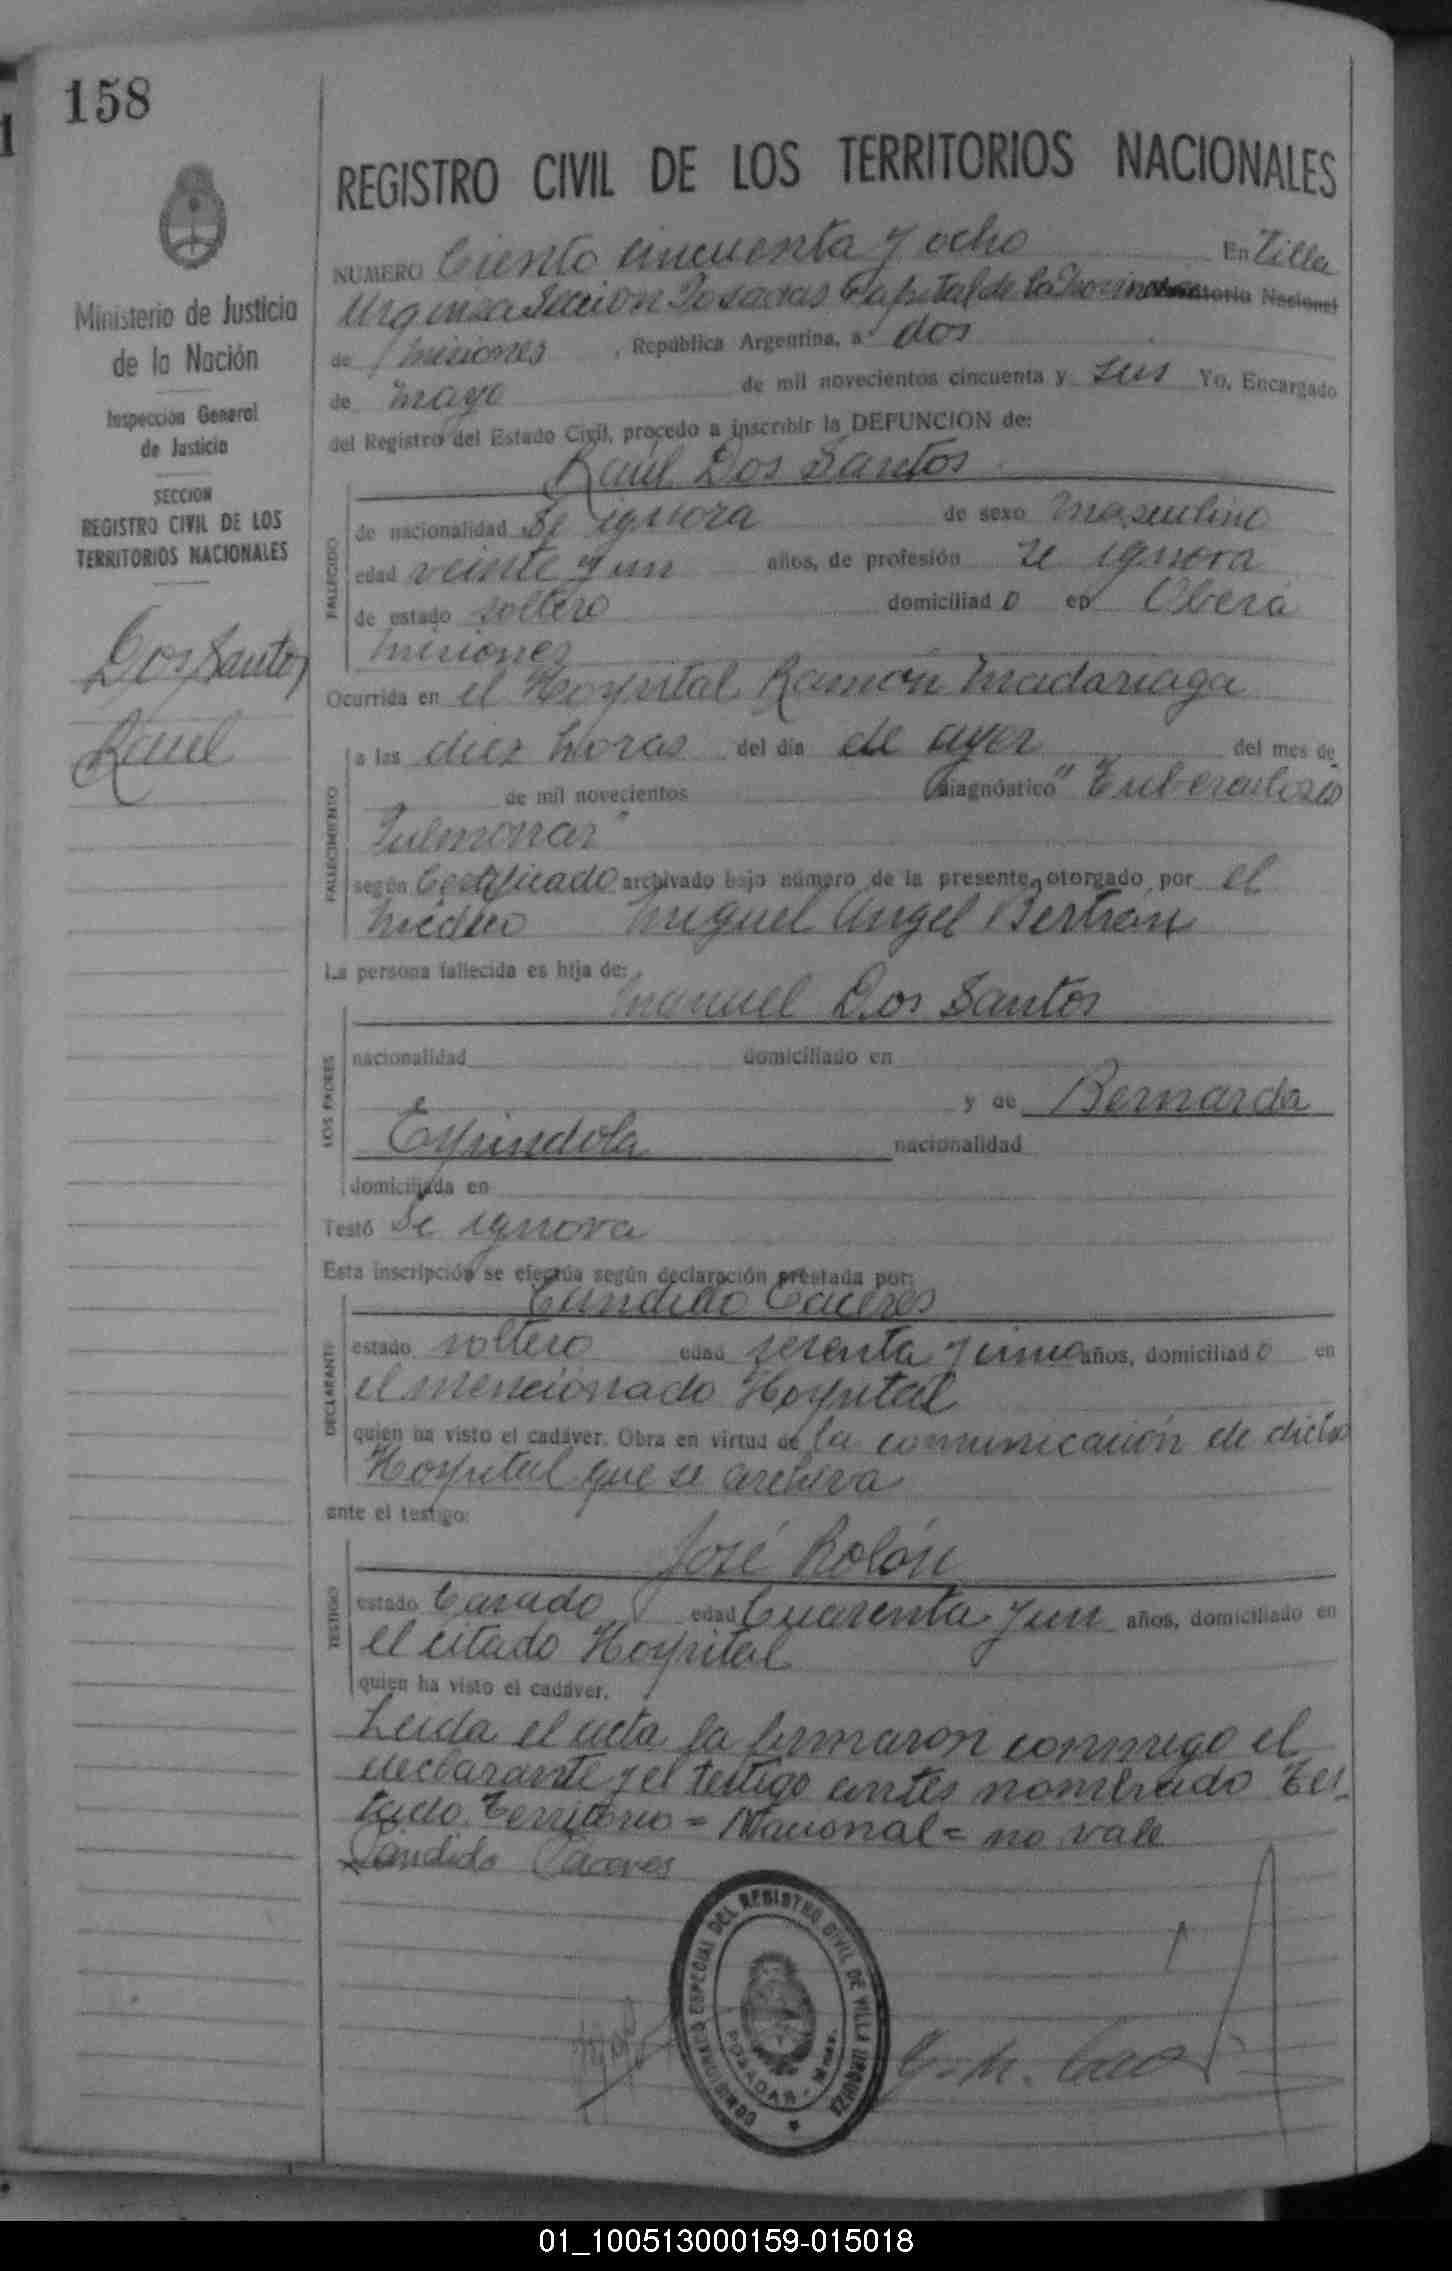 158
REGISTRO CIVIL DE LOS TERRITORIOS NACIONALES
Ministerio de Justicia
de la Nación
Inspección General
de Justicia
SECCION
REGISTRO CIVIL DE LOS
TERRITORIOS NACIONALES
Dos Santos
Raul
NUMERO Ciento cincuenta y ocho En Villa
Urquiza Sección Posadas Capital de la Provincia Territorio Nacional
de Misiones, República Argentina, a dos
de mayo de mil novecientos cincuenta y seis Yo, Encargado
del Registro del Estado Civil, procedo a inscribir la DEFUNCION de:
Raul Dos Santos
FALLECIDO
de nacionalidad Se ignora de sexo masculino
edad veinte y un años, de profesión se ignora
de estado soltero domiciliado en Oberá
Misiones
Ocurrida en el Hospital Ramón Madariaga
FALLECIMIENTO
a las diez horas del día de ayer del mes de
de mil novecientos diagnóstico "Tuberculosis
Pulmonar"
según Certificado archivado bajo número de la presente, otorgado por el
médico Miguel Angel Bertrán
La persona fallecida es hija de:
Manuel Dos Santos
LOS PADRES
nacionalidad domiciliado en
y de Bernarda
Espindola nacionalidad
domiciliada en
Testó Se ignora
Esta inscripción se efectúa según declaración prestada por:
Candido Caceres
DECLARANTE
estado soltero edad sesenta y uno años, domiciliado en
el mencionado Hospital
quien ha visto el cadáver. Obra en virtud de la comunicación de dicho
Hospital que se archiva
ante el testigo:
José Rolón
TESTIGO
estado Casado edad Cuarenta y un años, domiciliado en
el citado Hospital
quien ha visto el cadáver.
Leida el acta la firmaron conmigo el
declarante y el testigo antes nombrado Tes-
tado Territorio = Nacional = no vale
Cándido Caceres
COMISARIADO ESPECIAL DEL REGISTRO CIVIL DE VILLA URQUIZA
POSADAS - Mnes.
01_100513000159-015018